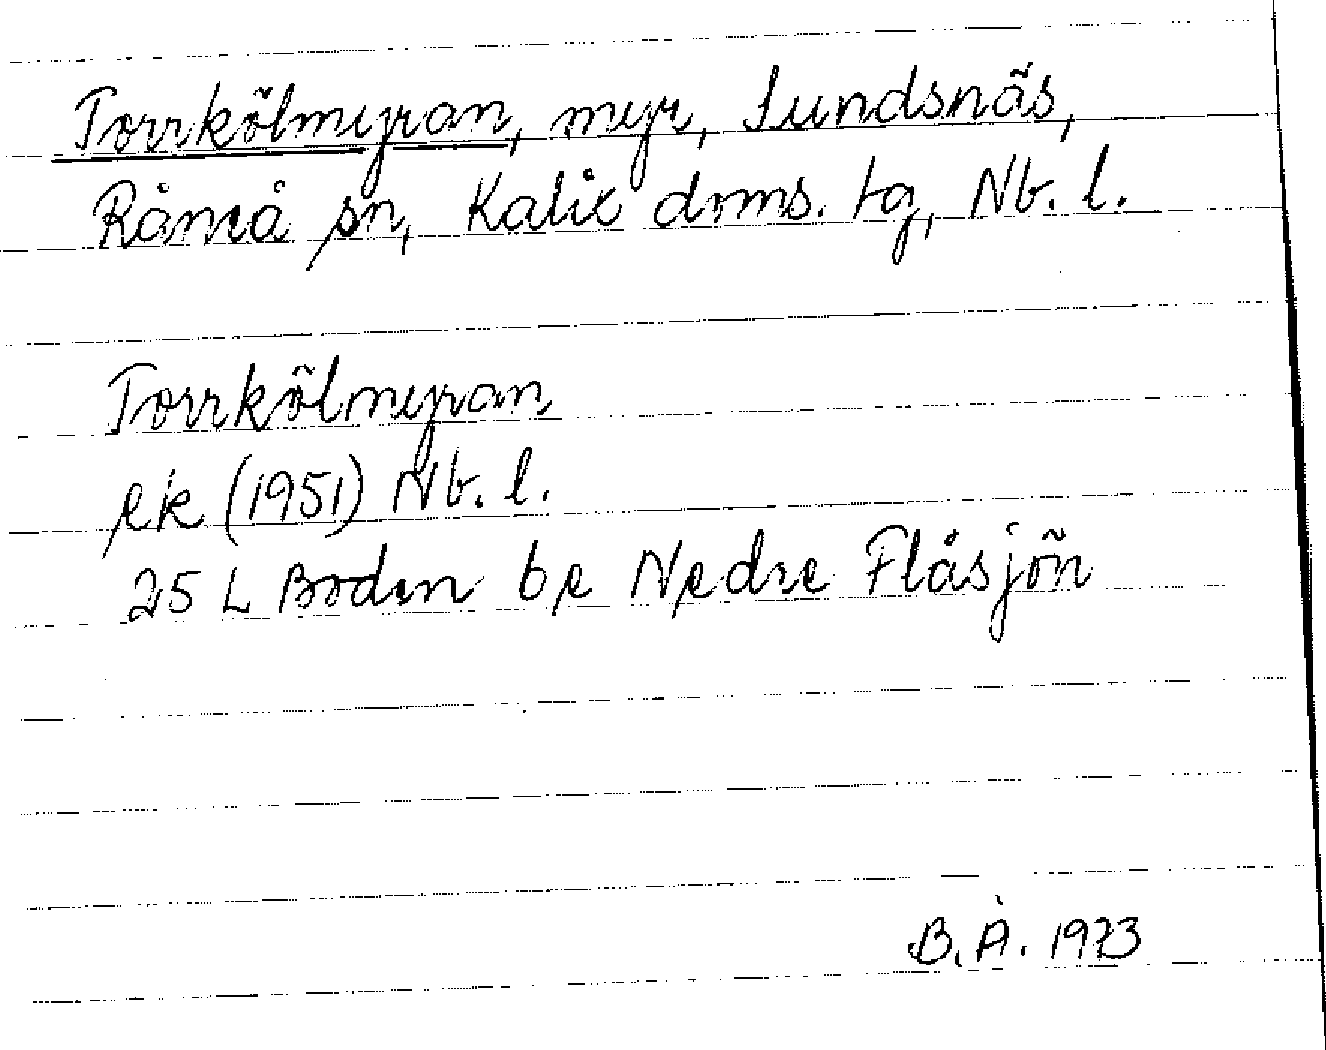 Torrkölmyran, myr, Sundsnäs,
Råneå sn, Kalix doms. tg, Nb. l.
Torrkölmyran
ek (1951) Nb. l.
25 L Boden be Nedre Flåsjön
B. Å. 1973